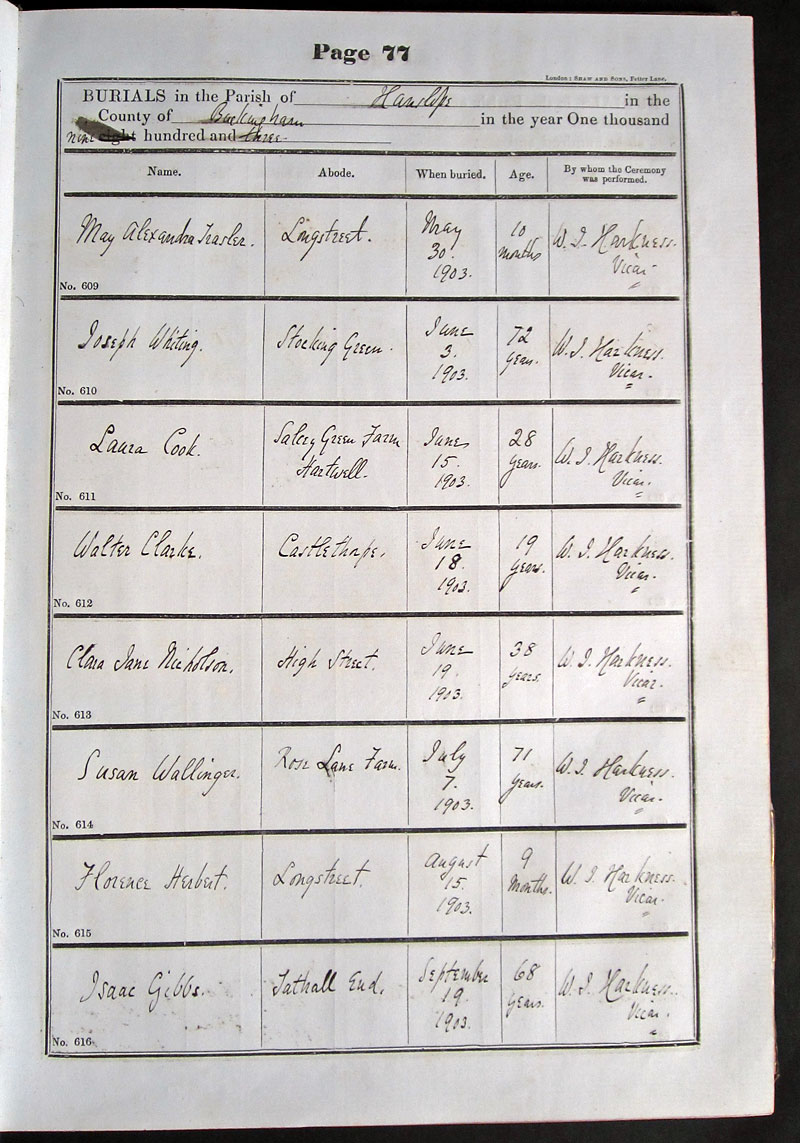 Page 77
London: SHAW AND SONS, Fetter Lane.
BURIALS in the Parish of Hanslope in the
County of Buckingham in the year One thousand
nine eight hundred and three
Name. Abode. When buried. Age. By whom the Ceremony
was performed.
May Alexandra Trasler. Longstreet. May 10 W. J. Harkness.
30. months Vicar.
1903.
No. 609
Joseph Whiting. Stocking Green. June 72 W. J. Harkness.
3. years. Vicar.
1903.
No. 610
Laura Cook. Salcey Green Farm June 28 W. J. Harkness.
Hartwell. 15. years. Vicar.
1903.
No. 611
Walter Clarke. Castlethorpe. June 19 W. J. Harkness.
18. years. Vicar.
1903.
No. 612
Clara Jane Nicholson. High Street. June 38 W. J. Harkness.
19. years. Vicar.
1903.
No. 613
Susan Wallinger. Rose Lane Farm. July 71 W. J. Harkness.
7. years. Vicar.
1903.
No. 614
Florence Herbert. Longstreet. August 9 W. J. Harkness.
15. months. Vicar.
1903.
No. 615
Isaac Gibbs. Tathall End. September 68 W. J. Harkness.
19. years. Vicar.
1903.
No. 616